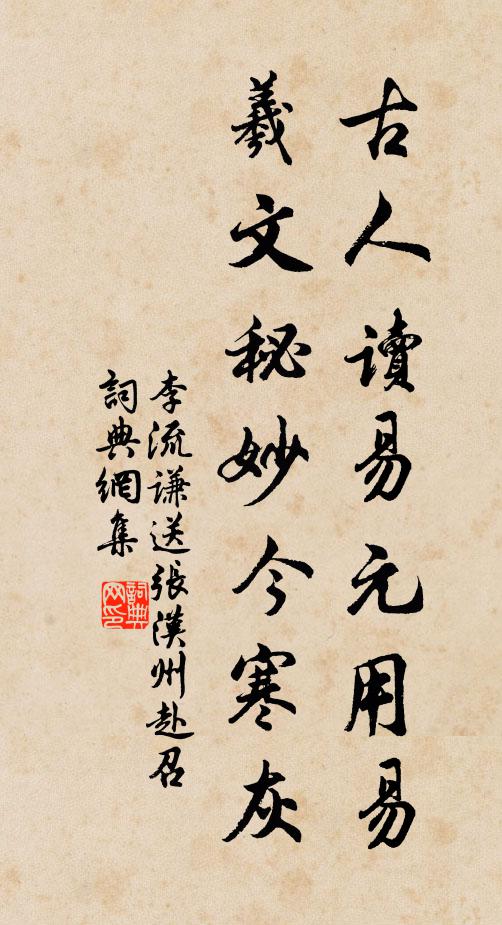 古人讀易元用易
羲文秘妙今寒灰
李流謙送張漢州赴召
詞典網集
詞典
网印